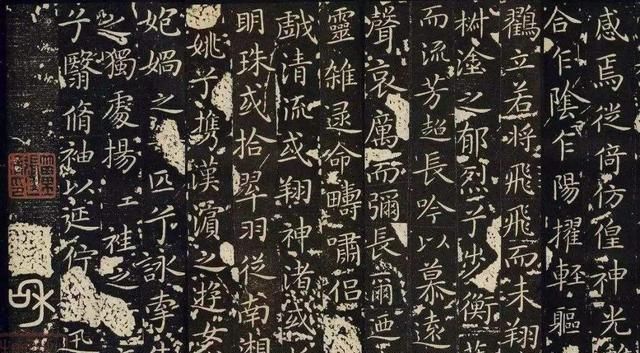 感焉徙倚仿偟神光
合乍陰乍陽擢輕軀
鸖立若將飛飛而未翔
塗之郁烈兮步衡
而流芳超長吟以慕遠
聲哀厲而彌長爾迺
靈雜遝命疇嘯侶
戲清流或翔神渚或
明珠或拾翠羽從南湘
姚兮攜漢濱之遊女
媧之匹兮詠牽牛
之獨處揚之
兮翳脩袖以延佇迅